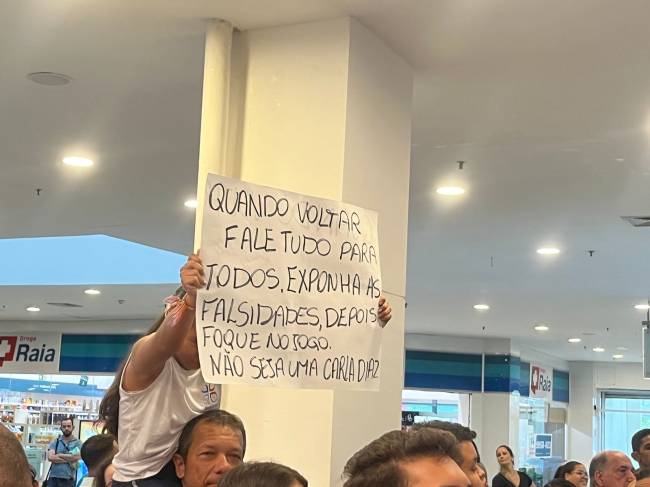 QUANDO VOLTAR
FALE TUDO PARA
TODOS, EXPONHA AS
FALSIDADES, DEPOIS
FOQUE NO JOGO.
NÃO SEJA UMA CARLA DIAZ
Droga
Raia
Raia